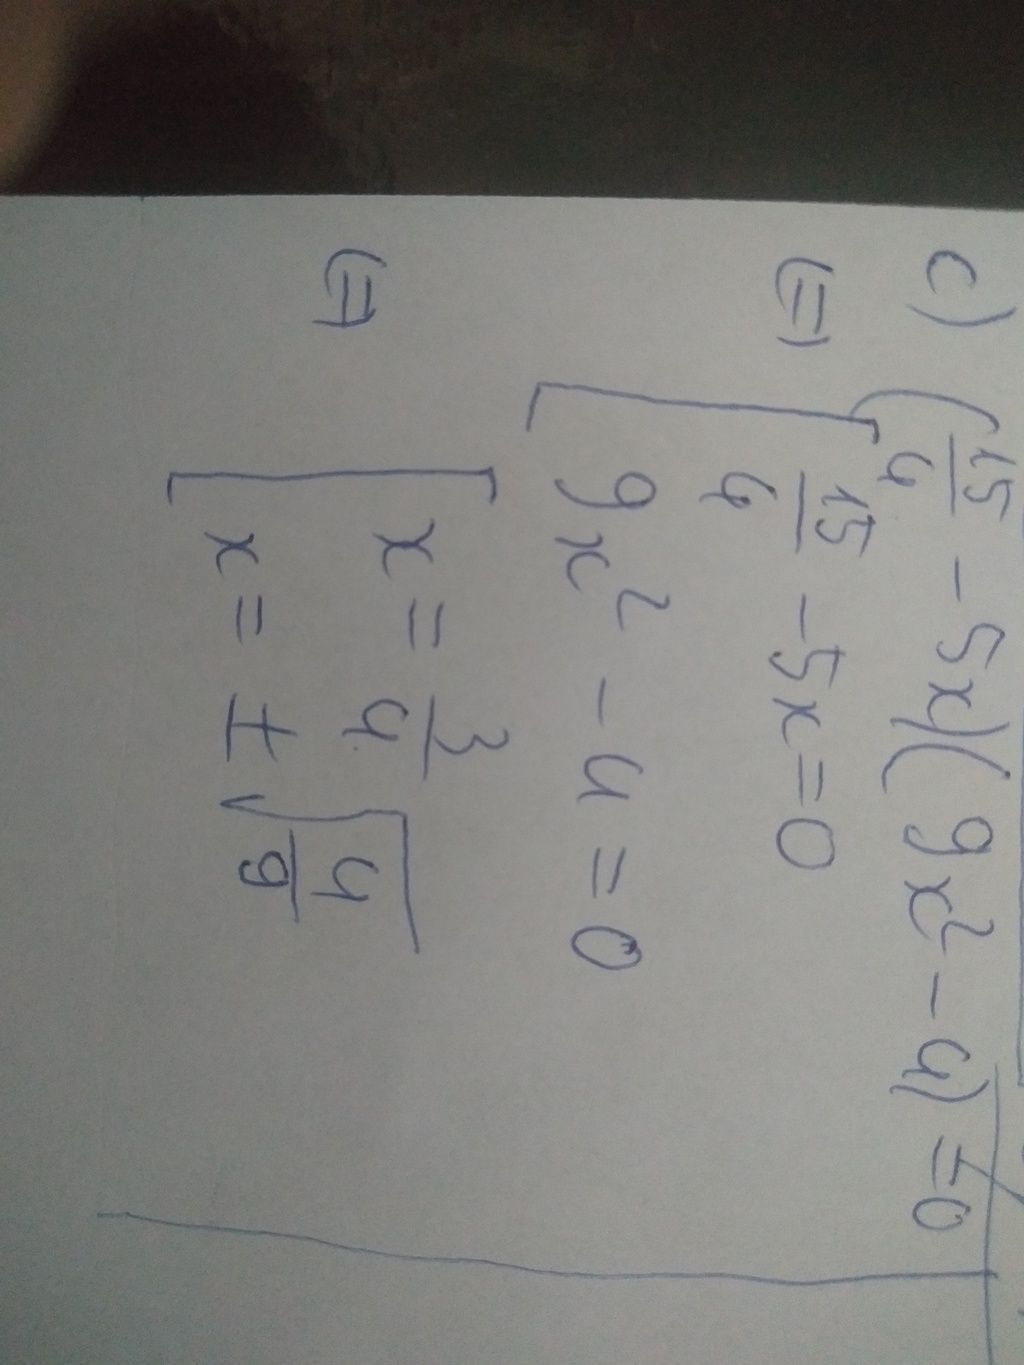 c) (15/4 - 5x)(9x² - 4) = 0
(=) [ 15/4 - 5x = 0
9x² - 4 = 0
(=) [ x = 3/4
x = ± √(4/9)